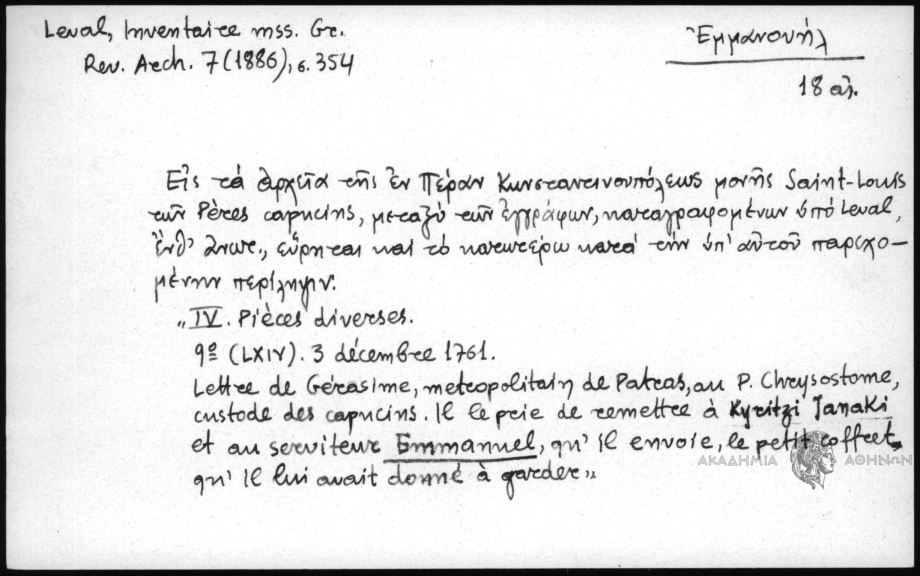 Leval, Inventaire mss. Gr.
Rev. Arch. 7 (1886), σ. 354
Ἐμμανουήλ
18 αἰ.
Εἰς τά ἀρχεῖα τῆς ἐν Πέραν Κωνσταντινουπόλεως μονῆς Saint-Louis
τῶν Pères capucins, μεταξύ τῶν ἐγγράφων, καταγραφομένων ὑπό Leval,
ἔνθ' ἄνωτ., εὕρηται καί τό κατωτέρω κατά τήν ὑπ' αὐτοῦ παρεχο-
μένην περίληψιν:
„IV. Pièces diverses.
9º (LXIV). 3 décembre 1761.
Lettre de Gérasime, metropolitain de Patras, au P. Chrysostome,
custode des capucins. Il le prie de remettre à Kyritzi Janaki
et au serviteur Emmanuel, qu' il envoie, le petit coffret
qu' il lui avait donné à garder„
ΑΚΑΔΗΜΙΑ ΑΘΗΝΩΝ